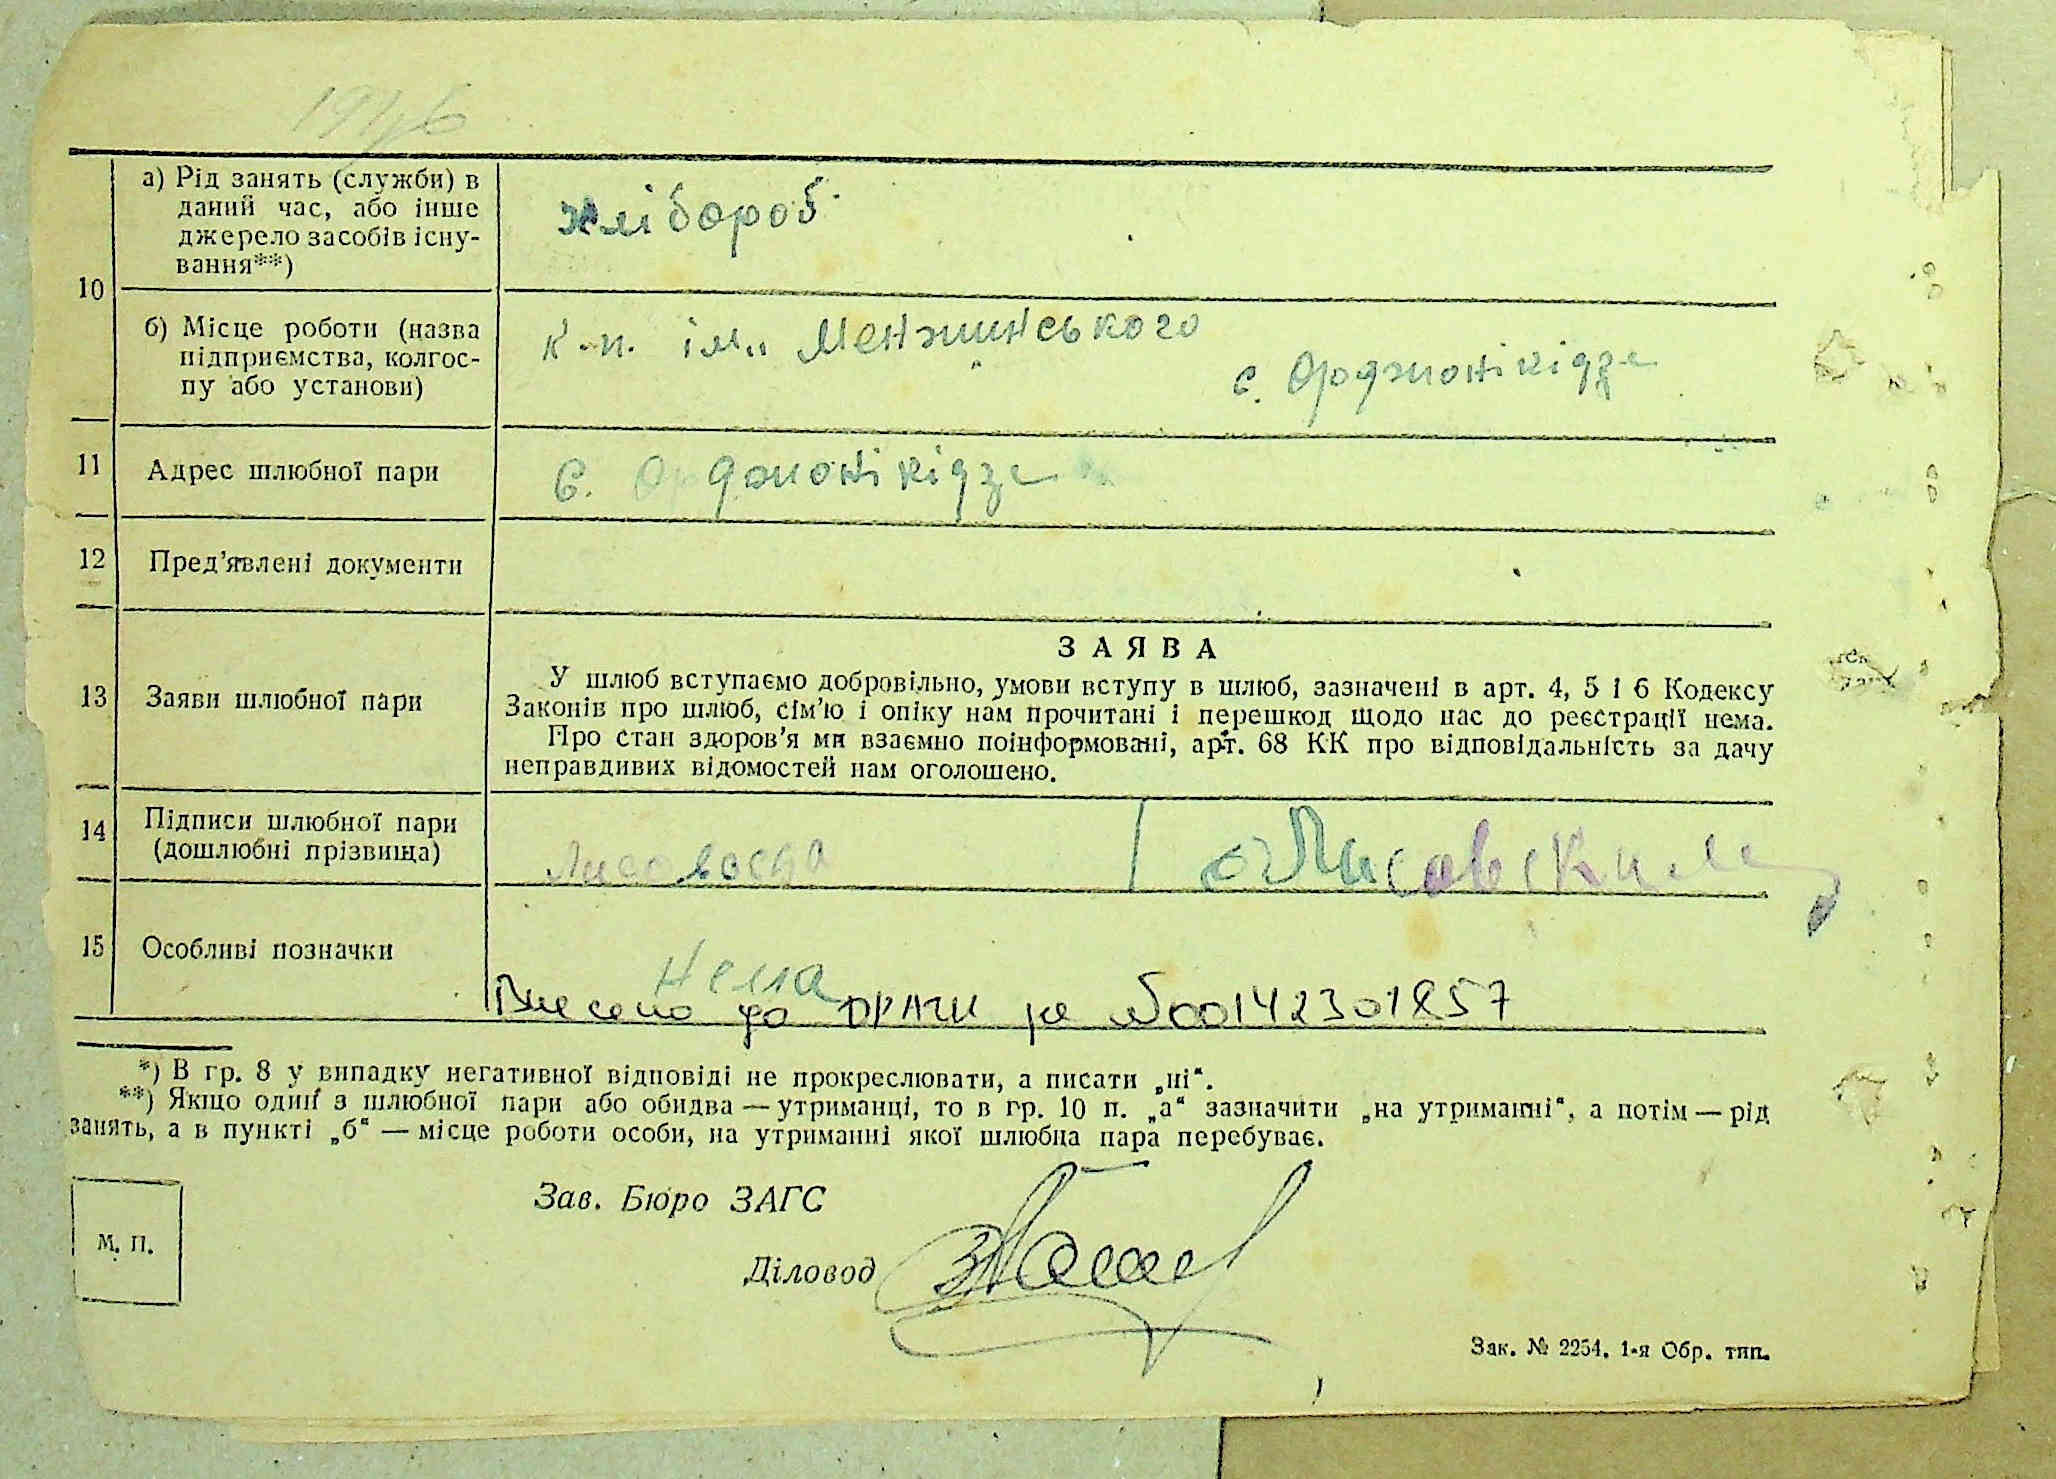 1946
10
а) Рід занять (служби) в
даний час, або інше
джерело засобів існу-
вання**)
хлібороб
б) Місце роботи (назва
підприємства, колгос-
пу або установи)
к-п. ім. Менжинського
с. Орджонікідзе
11
Адрес шлюбної пари
с. Орджонікідзе
12
Пред’явлені документи
13
Заяви шлюбної пари
ЗАЯВА
У шлюб вступаємо добровільно, умови вступу в шлюб, зазначені в арт. 4, 5 і 6 Кодексу
Законів про шлюб, сім’ю і опіку нам прочитані і перешкод щодо нас до реєстрації нема.
Про стан здоров’я ми взаємно поінформовані, арт. 68 КК про відповідальність за дачу
неправдивих відомостей нам оголошено.
14
Підписи шлюбної пари
(дошлюбні прізвища)
15
Особливі позначки
Нема
Внесено до ДРАЦС за №00142301857
*) В гр. 8 у випадку негативної відповіді не прокреслювати, а писати „ні“.
**) Якщо один з шлюбної пари або обидва — утриманці, то в гр. 10 п. „а“ зазначити „на утриманні“, а потім — рід
занять, а в пункті „б“ — місце роботи особи, на утриманні якої шлюбна пара перебуває.
Зав. Бюро ЗАГС
М. П.
Діловод
Зак. № 2254. 1-я Обр. тип.